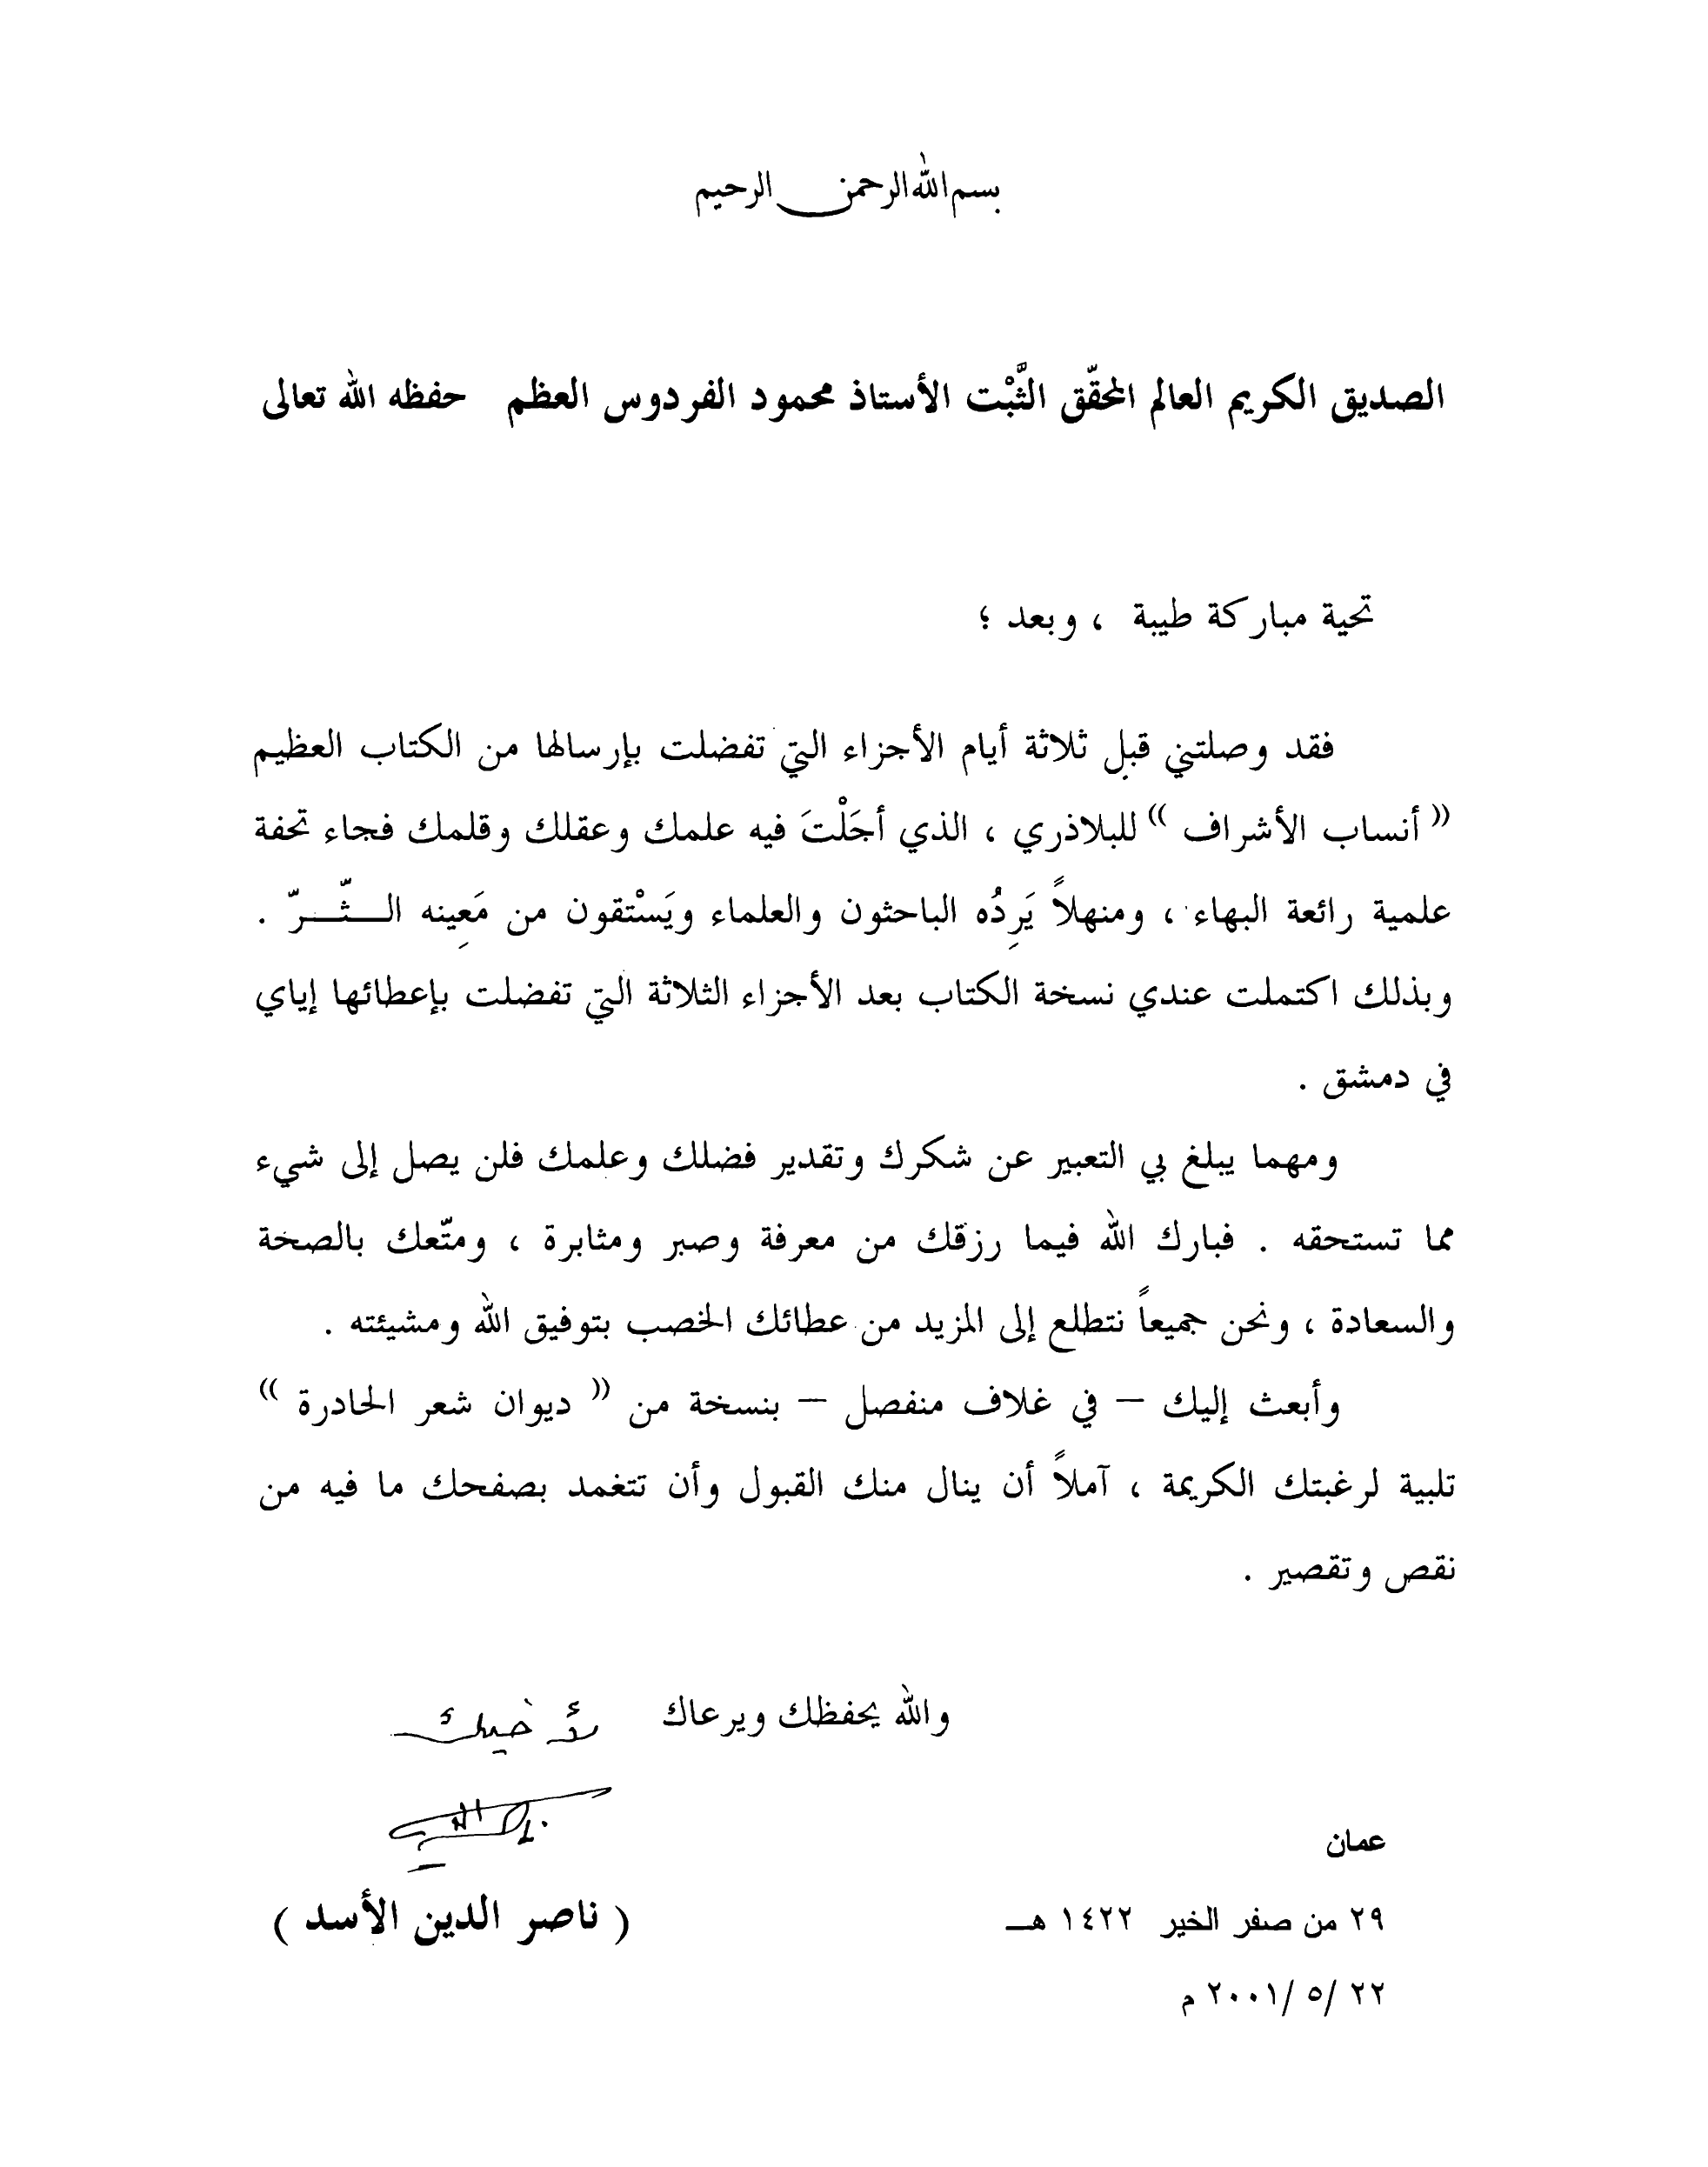 بسم الله الرحمن الرحيم
الصديق الكريم العالم المحقّق الثَّبْت الأستاذ محمود الفردوس العظم حفظه الله تعالى
تحية مباركة طيبة ، وبعد ؛
فقد وصلتني قبل ثلاثة أيام الأجزاء التي تفضلت بإرسالها من الكتاب العظيم
(( أنساب الأشراف )) للبلاذري ، الذي أجَلْتَ فيه علمك وعقلك وقلمك فجاء تحفة
علمية رائعة البهاء ، ومنهلاً يَرِدُه الباحثون والعلماء ويَسْتقون من مَعِينه الـثّـرّ .
وبذلك اكتملت عندي نسخة الكتاب بعد الأجزاء الثلاثة التي تفضلت بإعطائها إياي
في دمشق .
ومهما يبلغ بي التعبير عن شكرك وتقدير فضلك وعلمك فلن يصل إلى شيء
مما تستحقه . فبارك الله فيما رزقك من معرفة وصبر ومثابرة ، ومتّعك بالصخة
والسعادة ، ونحن جميعاً نتطلع إلى المزيد من عطائك الخصب بتوفيق الله ومشيئته .
وأبعث إليك – في غلاف منفصل – بنسخة من (( ديوان شعر الحادرة ))
تلبية لرغبتك الكريمة ، آملاً أن ينال منك القبول وأن تتغمد بصفحك ما فيه من
نقص وتقصير .
والله يحفظك ويرعاك
عمان
( ناصر الدين الأسد )
٢٩ من صفر الخير ١٤٢٢ هـ
٢٢ /٥ /٢٠٠١ م